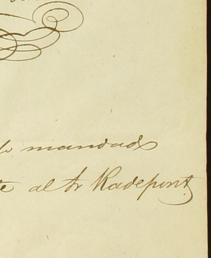 mandado
te al Sr Radepont